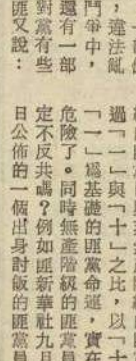 ，違法亂
鬥爭中，
還有一部
對黨有些
匪又說：
過「一」與「十」之比，以「十
「一」爲基礎的匪黨命運，實在
危險了。同時無產階級的匪黨員
定不反共嗎？例如匪新華社九月
日公佈的一個出身討飯的匪黨員